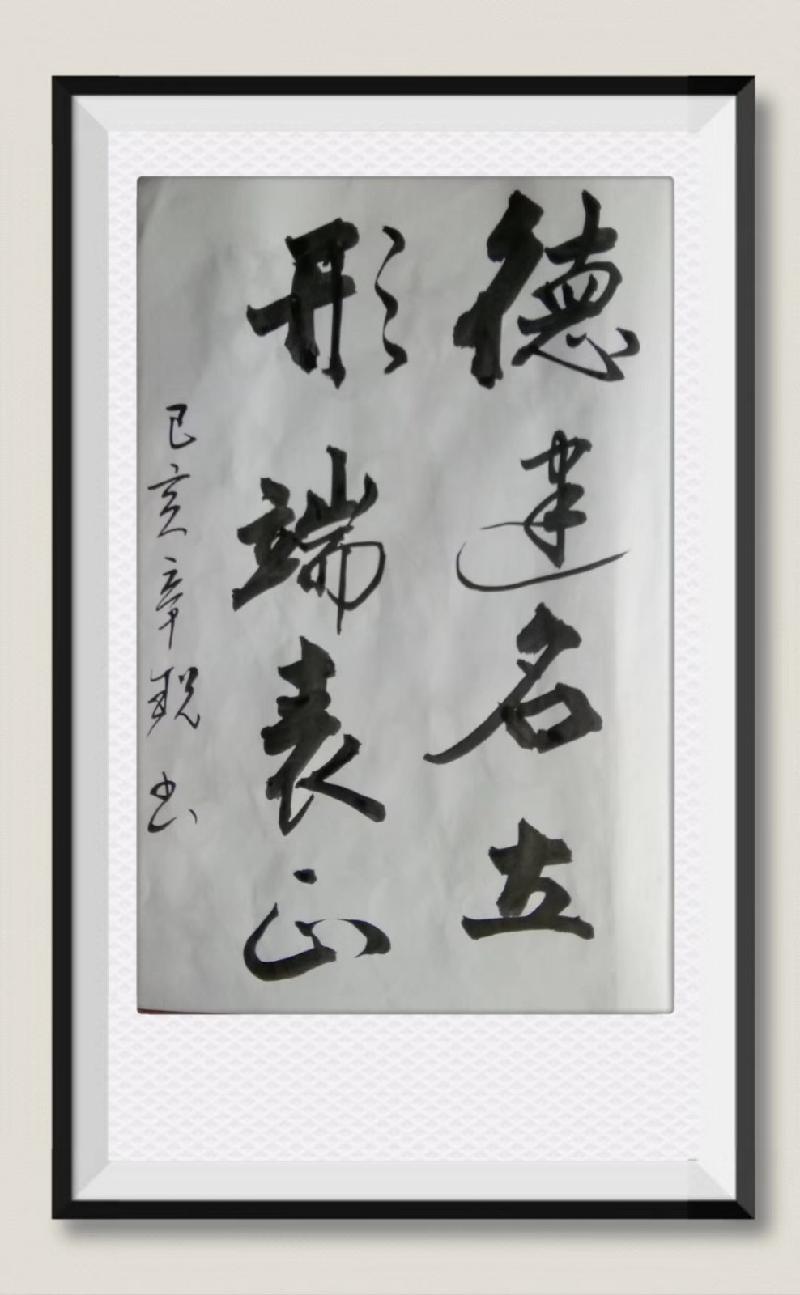 德建名立
形端表正
己亥章锐书